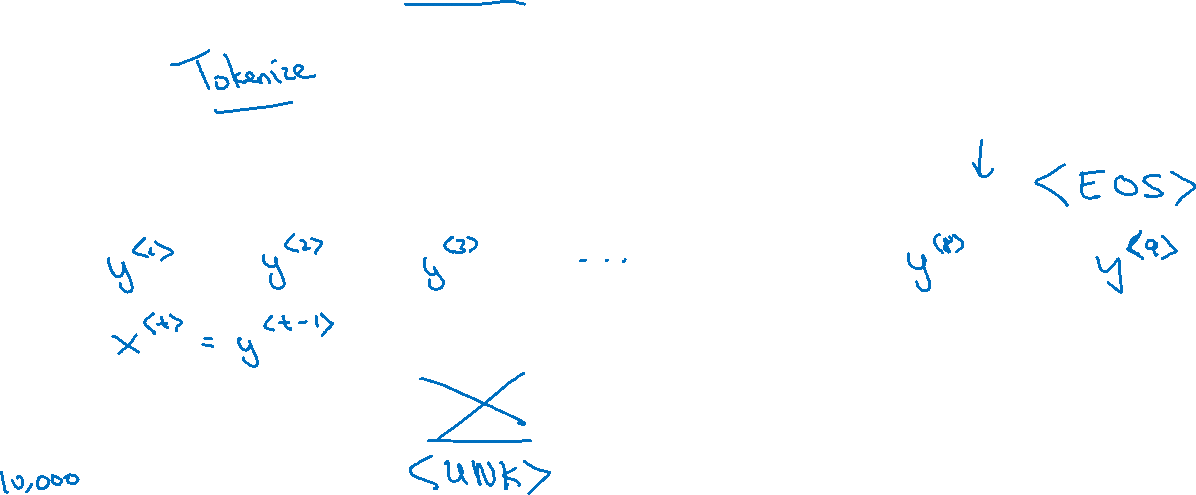 Tokenize
<EOS>
y<1> y<2> y<3> ... y<8> y<9>
x<t> = y<t-1>
<UNK>
10,000